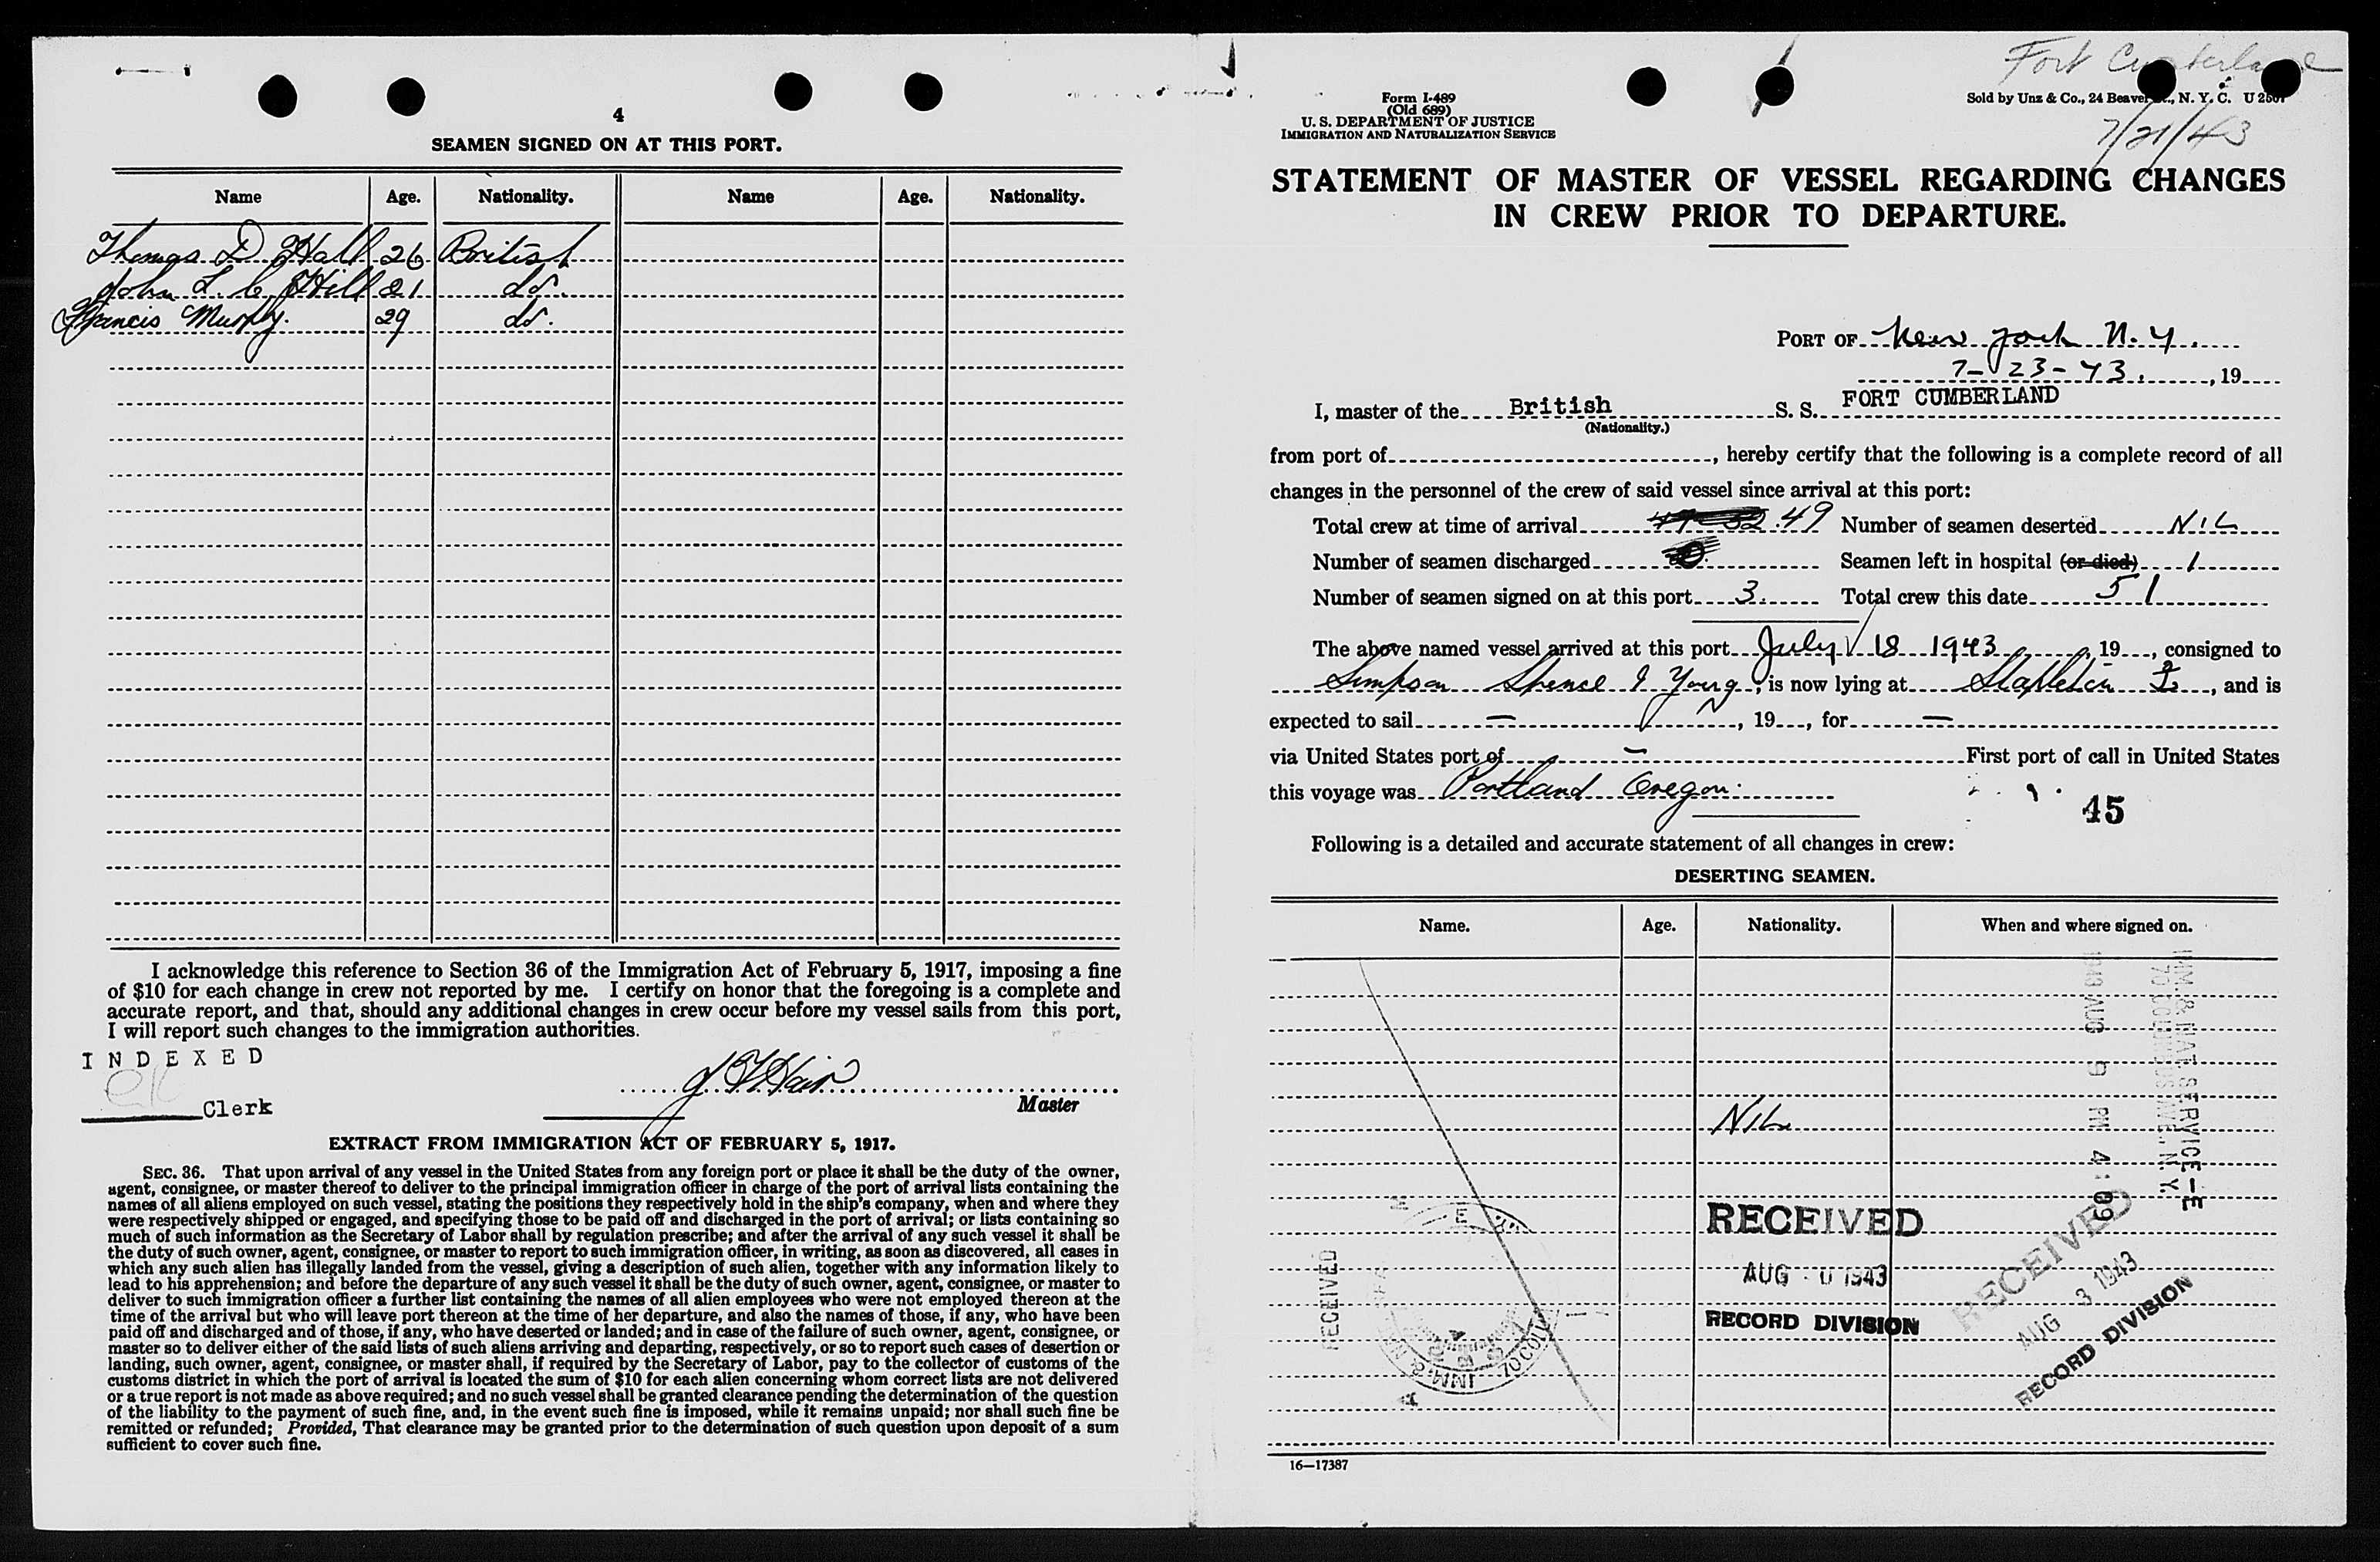 4
SEAMEN SIGNED ON AT THIS PORT.
Name Age. Nationality. Name Age. Nationality.
Thomas D Hall 26 British
John L. C Hill 21 do.
Francis Murphy. 29 do.
I acknowledge this reference to Section 36 of the Immigration Act of February 5, 1917, imposing a fine
of $10 for each change in crew not reported by me. I certify on honor that the foregoing is a complete and
accurate report, and that, should any additional changes in crew occur before my vessel sails from this port,
I will report such changes to the immigration authorities.
INDEXED
Clerk
Master
EXTRACT FROM IMMIGRATION ACT OF FEBRUARY 5, 1917.
SEC. 36. That upon arrival of any vessel in the United States from any foreign port or place it shall be the duty of the owner,
agent, consignee, or master thereof to deliver to the principal immigration officer in charge of the port of arrival lists containing the
names of all aliens employed on such vessel, stating the positions they respectively hold in the ship's company, when and where they
were respectively shipped or engaged, and specifying those to be paid off and discharged in the port of arrival; or lists containing so
much of such information as the Secretary of Labor shall by regulation prescribe; and after the arrival of any such vessel it shall be
the duty of such owner, agent, consignee, or master to report to such immigration officer, in writing, as soon as discovered, all cases in
which any such alien has illegally landed from the vessel, giving a description of such alien, together with any information likely to
lead to his apprehension; and before the departure of any such vessel it shall be the duty of such owner, agent, consignee, or master to
deliver to such immigration officer a further list containing the names of all alien employees who were not employed thereon at the
time of the arrival but who will leave port thereon at the time of her departure, and also the names of those, if any, who have been
paid off and discharged and of those, if any, who have deserted or landed; and in case of the failure of such owner, agent, consignee, or
master so to deliver either of the said lists of such aliens arriving and departing, respectively, or so to report such cases of desertion or
landing, such owner, agent, consignee, or master shall, if required by the Secretary of Labor, pay to the collector of customs of the
customs district in which the port of arrival is located the sum of $10 for each alien concerning whom correct lists are not delivered
or a true report is not made as above required; and no such vessel shall be granted clearance pending the determination of the question
of the liability to the payment of such fine, and, in the event such fine is imposed, while it remains unpaid; nor shall such fine be
remitted or refunded; Provided, That clearance may be granted prior to the determination of such question upon deposit of a sum
sufficient to cover such fine.
Fort Cumberland
Form I-489
(Old 689)
U. S. DEPARTMENT OF JUSTICE
IMMIGRATION AND NATURALIZATION SERVICE
Sold by Unz & Co., 24 Beaver St., N. Y. C. U 2507
7/21/43
STATEMENT OF MASTER OF VESSEL REGARDING CHANGES
IN CREW PRIOR TO DEPARTURE.
PORT OF New York N.Y.
7-23-43. , 19
I, master of the British S. S. FORT CUMBERLAND
(Nationality.)
from port of , hereby certify that the following is a complete record of all
changes in the personnel of the crew of said vessel since arrival at this port:
Total crew at time of arrival 49 Number of seamen deserted NIL
Number of seamen discharged Seamen left in hospital (or died) 1
Number of seamen signed on at this port 3. Total crew this date 51
The above named vessel arrived at this port July 18 1943 , 19 , consigned to
Simpson Spence & Young , is now lying at Stapleton , and is
expected to sail — , 19 , for —
via United States port of — First port of call in United States
this voyage was Portland Oregon.
45
Following is a detailed and accurate statement of all changes in crew:
DESERTING SEAMEN.
Name. Age. Nationality. When and where signed on.
NIL
IMM. & NAT. SERVICE—E
70 COLUMBUS AVE., N.Y.
1943 AUG 9 PM 4:09
RECEIVED
AUG 1943
RECORD DIVISION
RECEIVED
AUG 3 1943
RECORD DIVISION
RECEIVED
16—17387